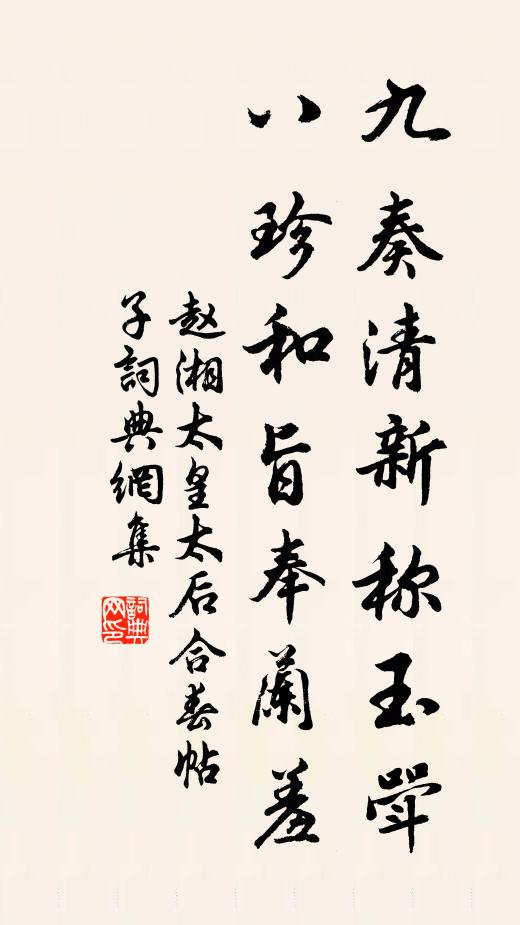 九奏清新称玉斝
八珍和旨奉蘭羞
赵湘太皇太后合春帖
子詞典網集
詞典网印